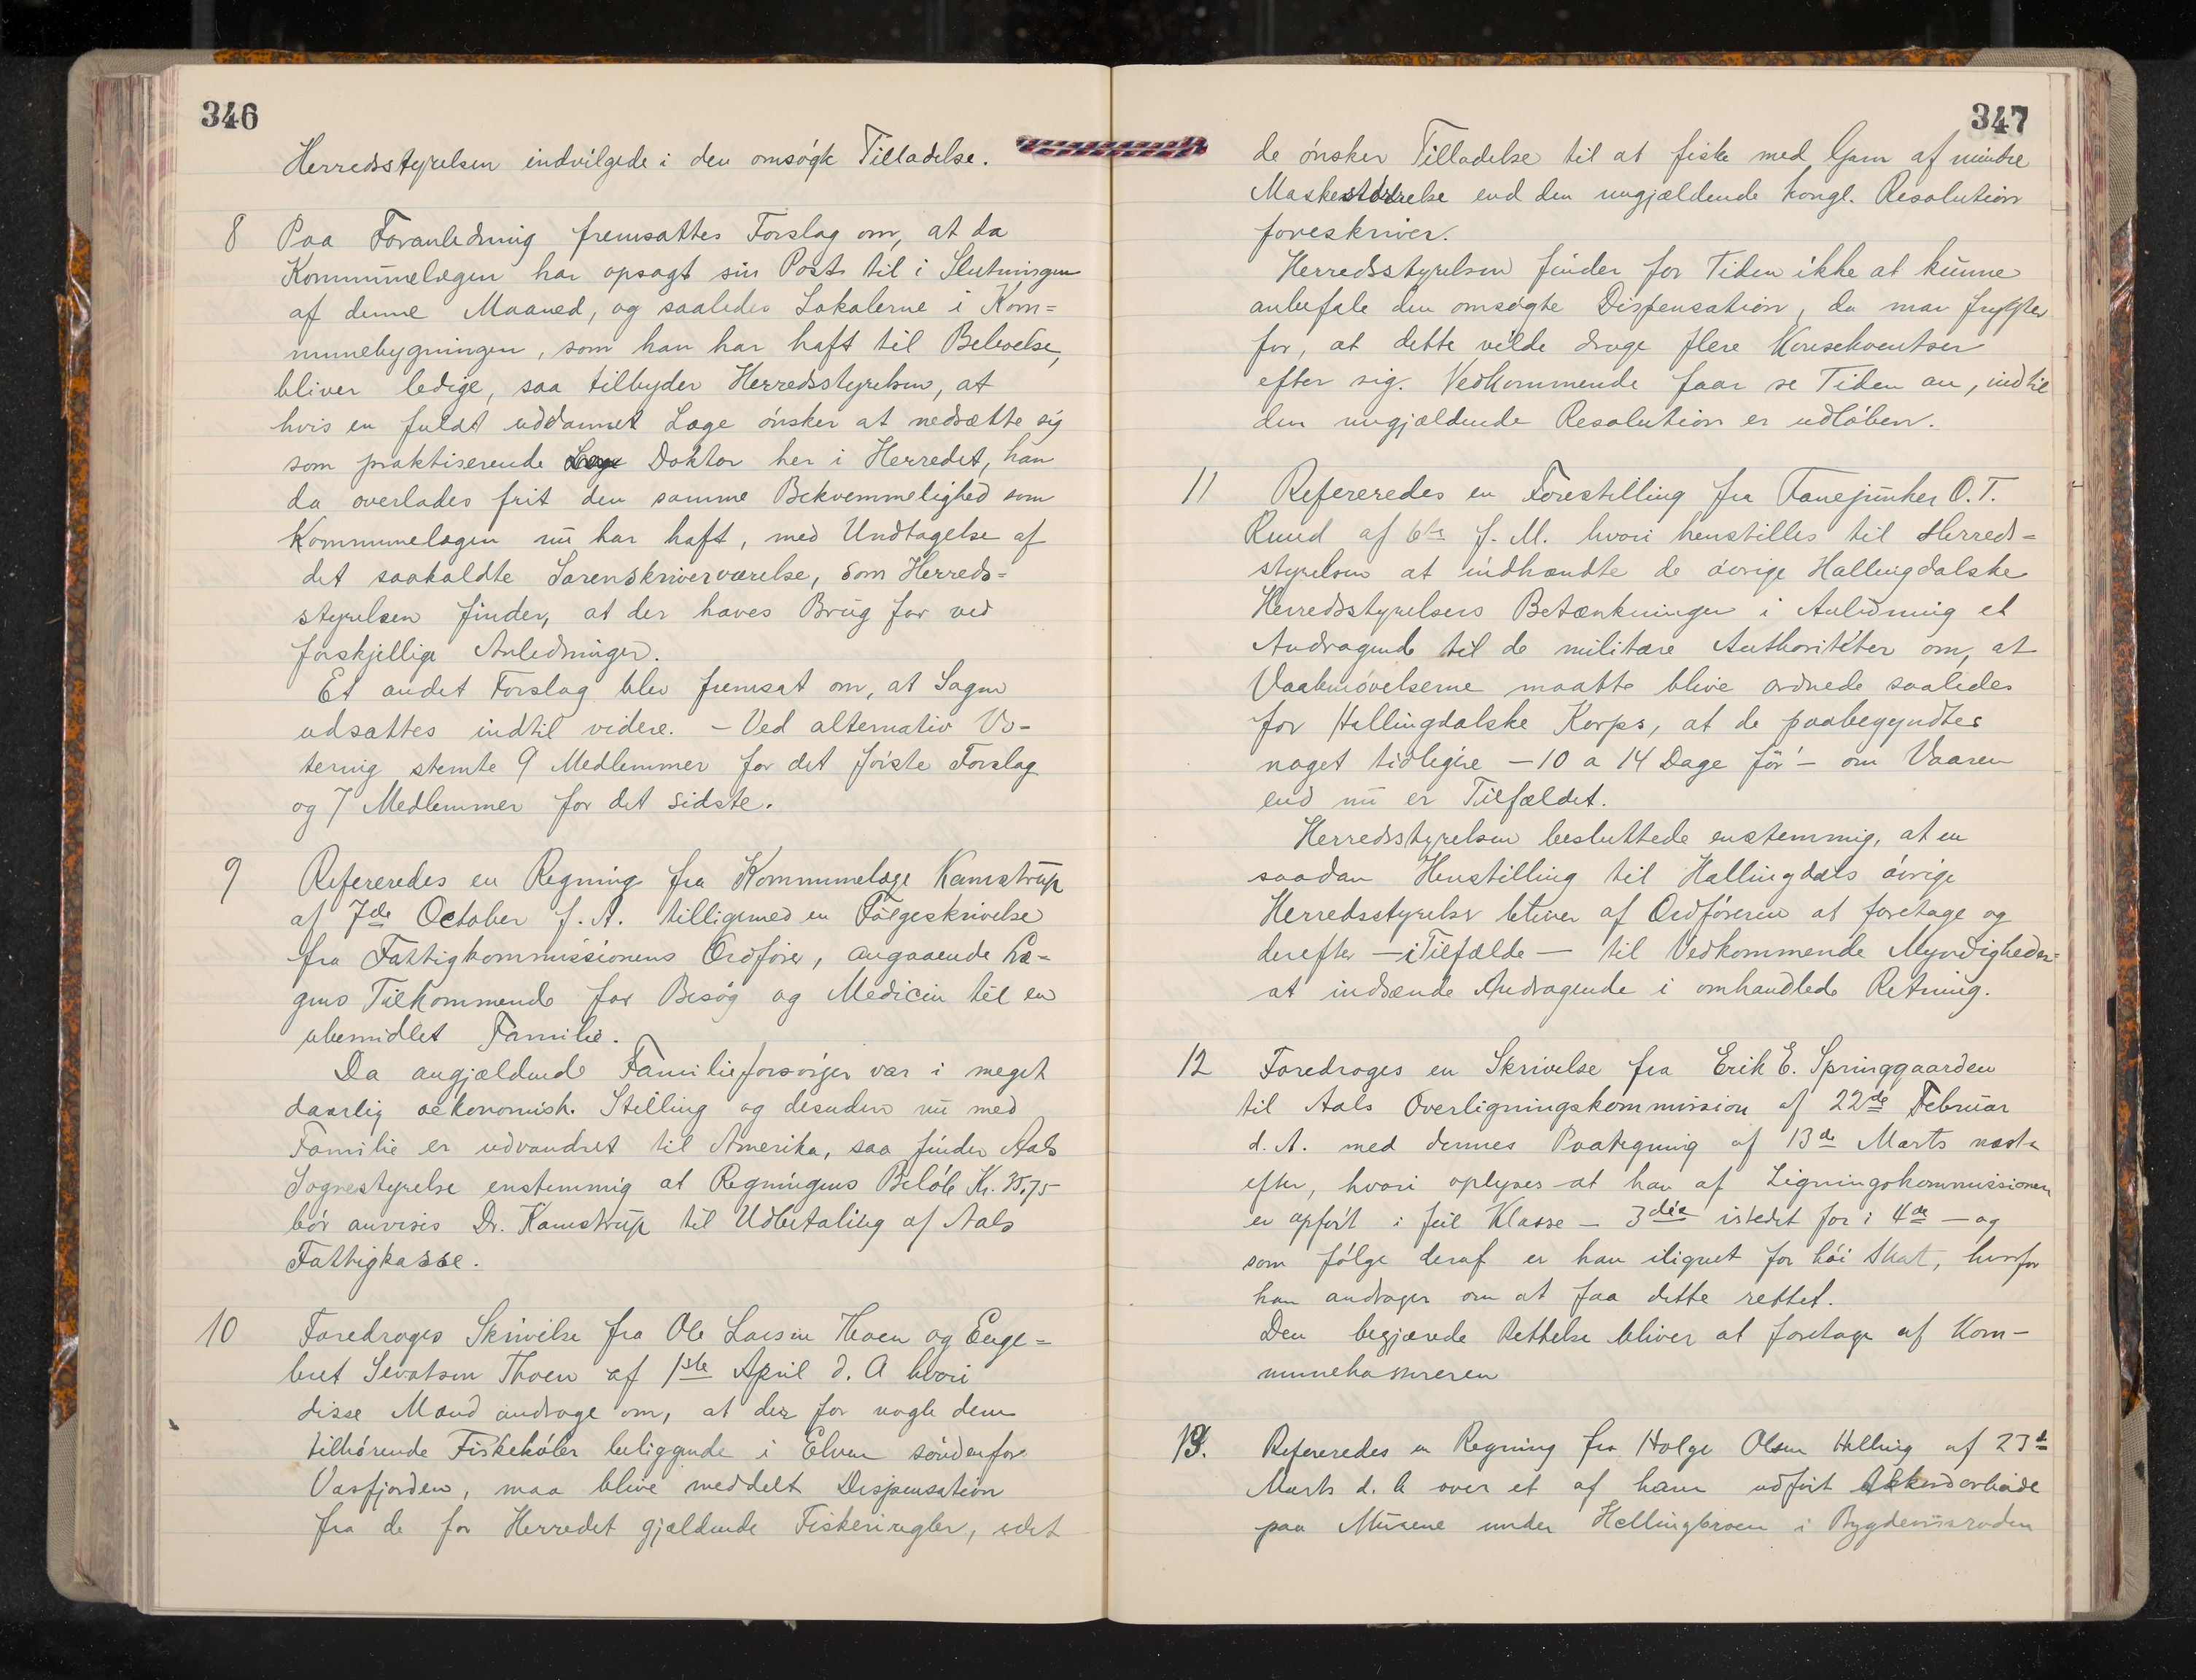 346
Herredsstyrelsen indvilgede i den omsøgte Tilladelse.
8 Paa Foranledning fremsattes Forslag om, at da
Kommunelægen har opsagt sin Post til i Slutningen
af denne Maaned, og saaledes Lokalerne i Kom=
munebygningen, som han har haft til Beboelse,
bliver ledige, saa tilbyder Herredsstyrelsen, at
hvis en fuldt uddannet Læge ønsker at nedsætte sig
som praktiserende Doktor her i Herredet, han
da overlades frit den samme Bekvemmelighed som
Kommunelægen nu har haft, med Undtagelse af
det saakaldte Sorenskriverværelse, som Herreds=
styrelsen finder, at der haves Brug for ved
forskjellige Anledninger.
Et andet Forslag blev fremsat om, at Sagen
udsattes indtil videre. – Ved alternativ Vo-
tering stemte 9 Medlemmer for det første Forslag
og 7 Medlemmer for det sidste.
9 Refereredes en Regning fra Kommunelæge Kamstrup
af 7de October f. A. tilligemed en Følgeskrivelse
fra Fattigkommissionens Ordfører, angaaende Læ-
gens Tilkommende for Besøg og Medicin til en
ubemidlet Familie.
Da angjældende Familieforsørger var i meget
daarlig oekonomisk Stilling og desuden nu med
Familie er udvandret til Amerika, saa finder Aals
Sognestyrelse enstemmig at Regningens Beløb Kr. 35,75
bør anvises Dr. Kamstrup til Udbetaling af Aals
Fattigkasse.
10 Foredroges Skrivelse fra Ole Larsen Hoen og Enge=
bret Sevatsen Thoen af 1ste April d. A hvori
disse Mænd androge om, at der for nogle dem
tilhørende Fiskehøler beliggende i Elven søndenfor
Vasfjorden, maa blive meddelt Dispensation
fra de for Herredet gjældende Fiskeriregler, idet
347
de ønsker Tilladelse til at fiske med Garn af mindre
Maskestørrelse end den nugjældende kongl. Resolution
foreskriver.
Herredsstyrelsen finder for Tiden ikke at kunne
anbefale den omsøgte Dispensation, da man frygter
for, at dette vilde drage flere Konsekventser
efter sig. Vedkommende faar se Tiden an, indtil
den nugjældende Resolution er udløben.
11 Refereredes en Forestilling fra Fanejunker O. T.
Ruud af 6te f. M. hvori henstilles til Herreds=
styrelsen at indhændte de øvrige Hallingdalske
Herredsstyrelsers Betænkninger i Anledning et
Andragende til de militære Authoriteter om, at
Vaabenøvelserne maatte blive ordnede saaledes
for Hallingdalske Korps, at de paabegyndtes
noget tidligere – 10 a 14 Dage før – om Vaaren
end nu er Tilfældet.
Herredsstyrelsen besluttede enstemmig, at en
saadan Henstilling til Hallingdals øvrige
Herredsstyrelser bliver af Ordføreren at foretage og
derefter – i Tilfælde – til Vedkommende Myndigheder
at indsende Andragende i omhandlede Retning.
12 Foredroges en Skrivelse fra Erik E. Springgaarden
til Aals Overligningskommission af 22de Februar
d. A. med dennes Paategning af 13de Marts næst
efter, hvori oplyses at han af Ligningskommissionen
er opført i feil Klasse – 3die istedet for i 4de – og
som følge deraf er han ilignet for høi Skat, hvorfor
han andrager om at faa dette rettet.
Den begjærede Rettelse bliver at foretage af Kom-
munekassereren
13. Refereredes en Regning fra Holge Olsen Helling af 23de
Marts d. A over et af ham udført Akkordarbeide
paa Murene under Hellingbroen i